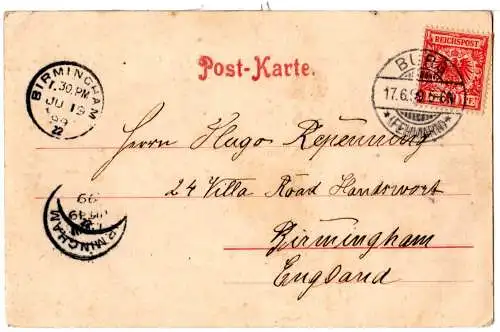 REICHSPOST
Post-Karte.
BURG
17.6.99.5-6N.
*(FEHMARN)*
BIRMINGHAM
1.30.PM
JU 19
99
22
Herrn Hugo Repenning
24 Villa Road Handswort
Birmingham
England
BIRMINGHAM
99